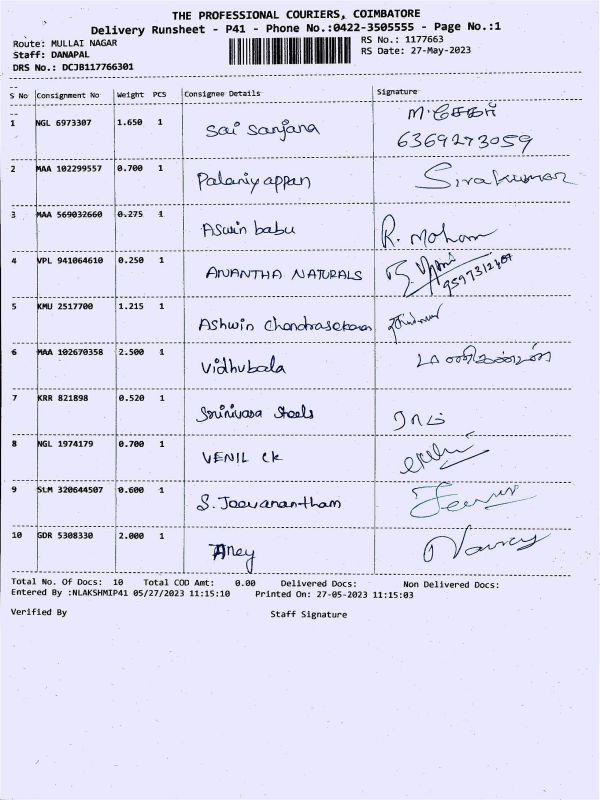 THE PROFESSIONAL COURIERS, COIMBATORE
Delivery Runsheet - P41 - Phone No.:0422-3505555 - Page No.:1
Route: MULLAI NAGAR RS No.: 1177663
Staff: DANAPAL RS Date: 27-May-2023
DRS No.: DCJB117766301
S No Consignment No Weight PCS Consignee Details Signature
1 NGL 6973307 1.650 1 Sai Sanjana M.சேகர்
6369273059
2 MAA 102299557 0.700 1 Palaniyappan Sivakumar
3 MAA 569032660 0.275 1 Aswin babu R. Mohan
4 VPL 941064610 0.250 1 ANANTHA NATURALS
5 KMU 2517700 1.215 1 Ashwin Chandrasekaran
6 MAA 102670358 2.500 1 Vidhubala
7 KRR 821898 0.520 1 Srinivasa Steels
8 NGL 1974179 0.700 1 VENIL CK
9 SLM 320644507 0.600 1 S. Jeevanantham
10 GDR 5308330 2.000 1
Total No. Of Docs: 10 Total COD Amt: 0.00 Delivered Docs: Non Delivered Docs:
Entered By :NLAKSHMIP41 05/27/2023 11:15:10 Printed On: 27-05-2023 11:15:03
Verified By Staff Signature